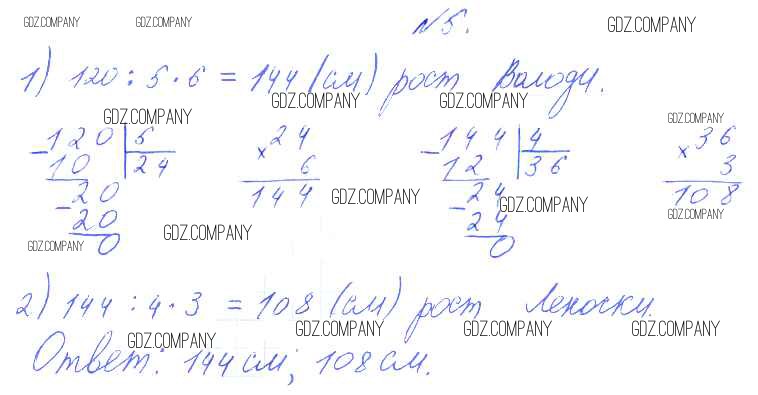 GDZ.COMPANY GDZ.COMPANY №5. GDZ.COMPANY
1) 120 : 5 · 6 = 144 (см) рост Володи.
GDZ.COMPANY GDZ.COMPANY GDZ.COMPANY GDZ.COMPANY
120 | 5
- 10 | 24
20
- 20
0
24
× 6
144
144 | 4
- 12 | 36
24
- 24
0
36
× 3
108
GDZ.COMPANY GDZ.COMPANY GDZ.COMPANY
GDZ.COMPANY GDZ.COMPANY
2) 144 : 4 · 3 = 108 (см) рост Леночки.
GDZ.COMPANY GDZ.COMPANY GDZ.COMPANY GDZ.COMPANY
Ответ: 144 см; 108 см.